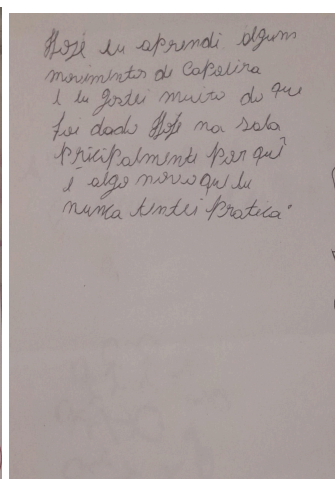 Hoje eu aprendi alguns
movimentos de Capoeira
e eu gostei muito do que
foi dado Hoje na sala
pricipalmente por quê
é algo novo que eu
nunca tentei pratica.